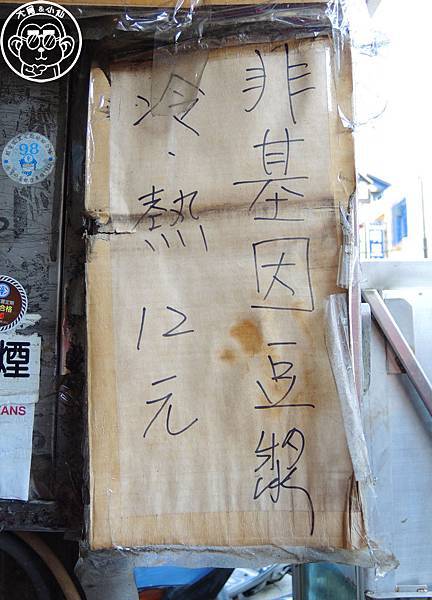 非基因豆漿
冷.熱 12元
大胃&小仙
98
合格
煙
ANS